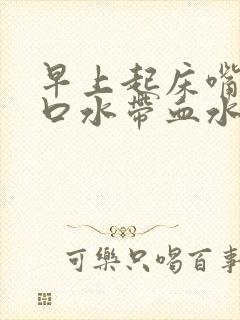 早上起床嘴
口水帶血水
可樂只喝百事